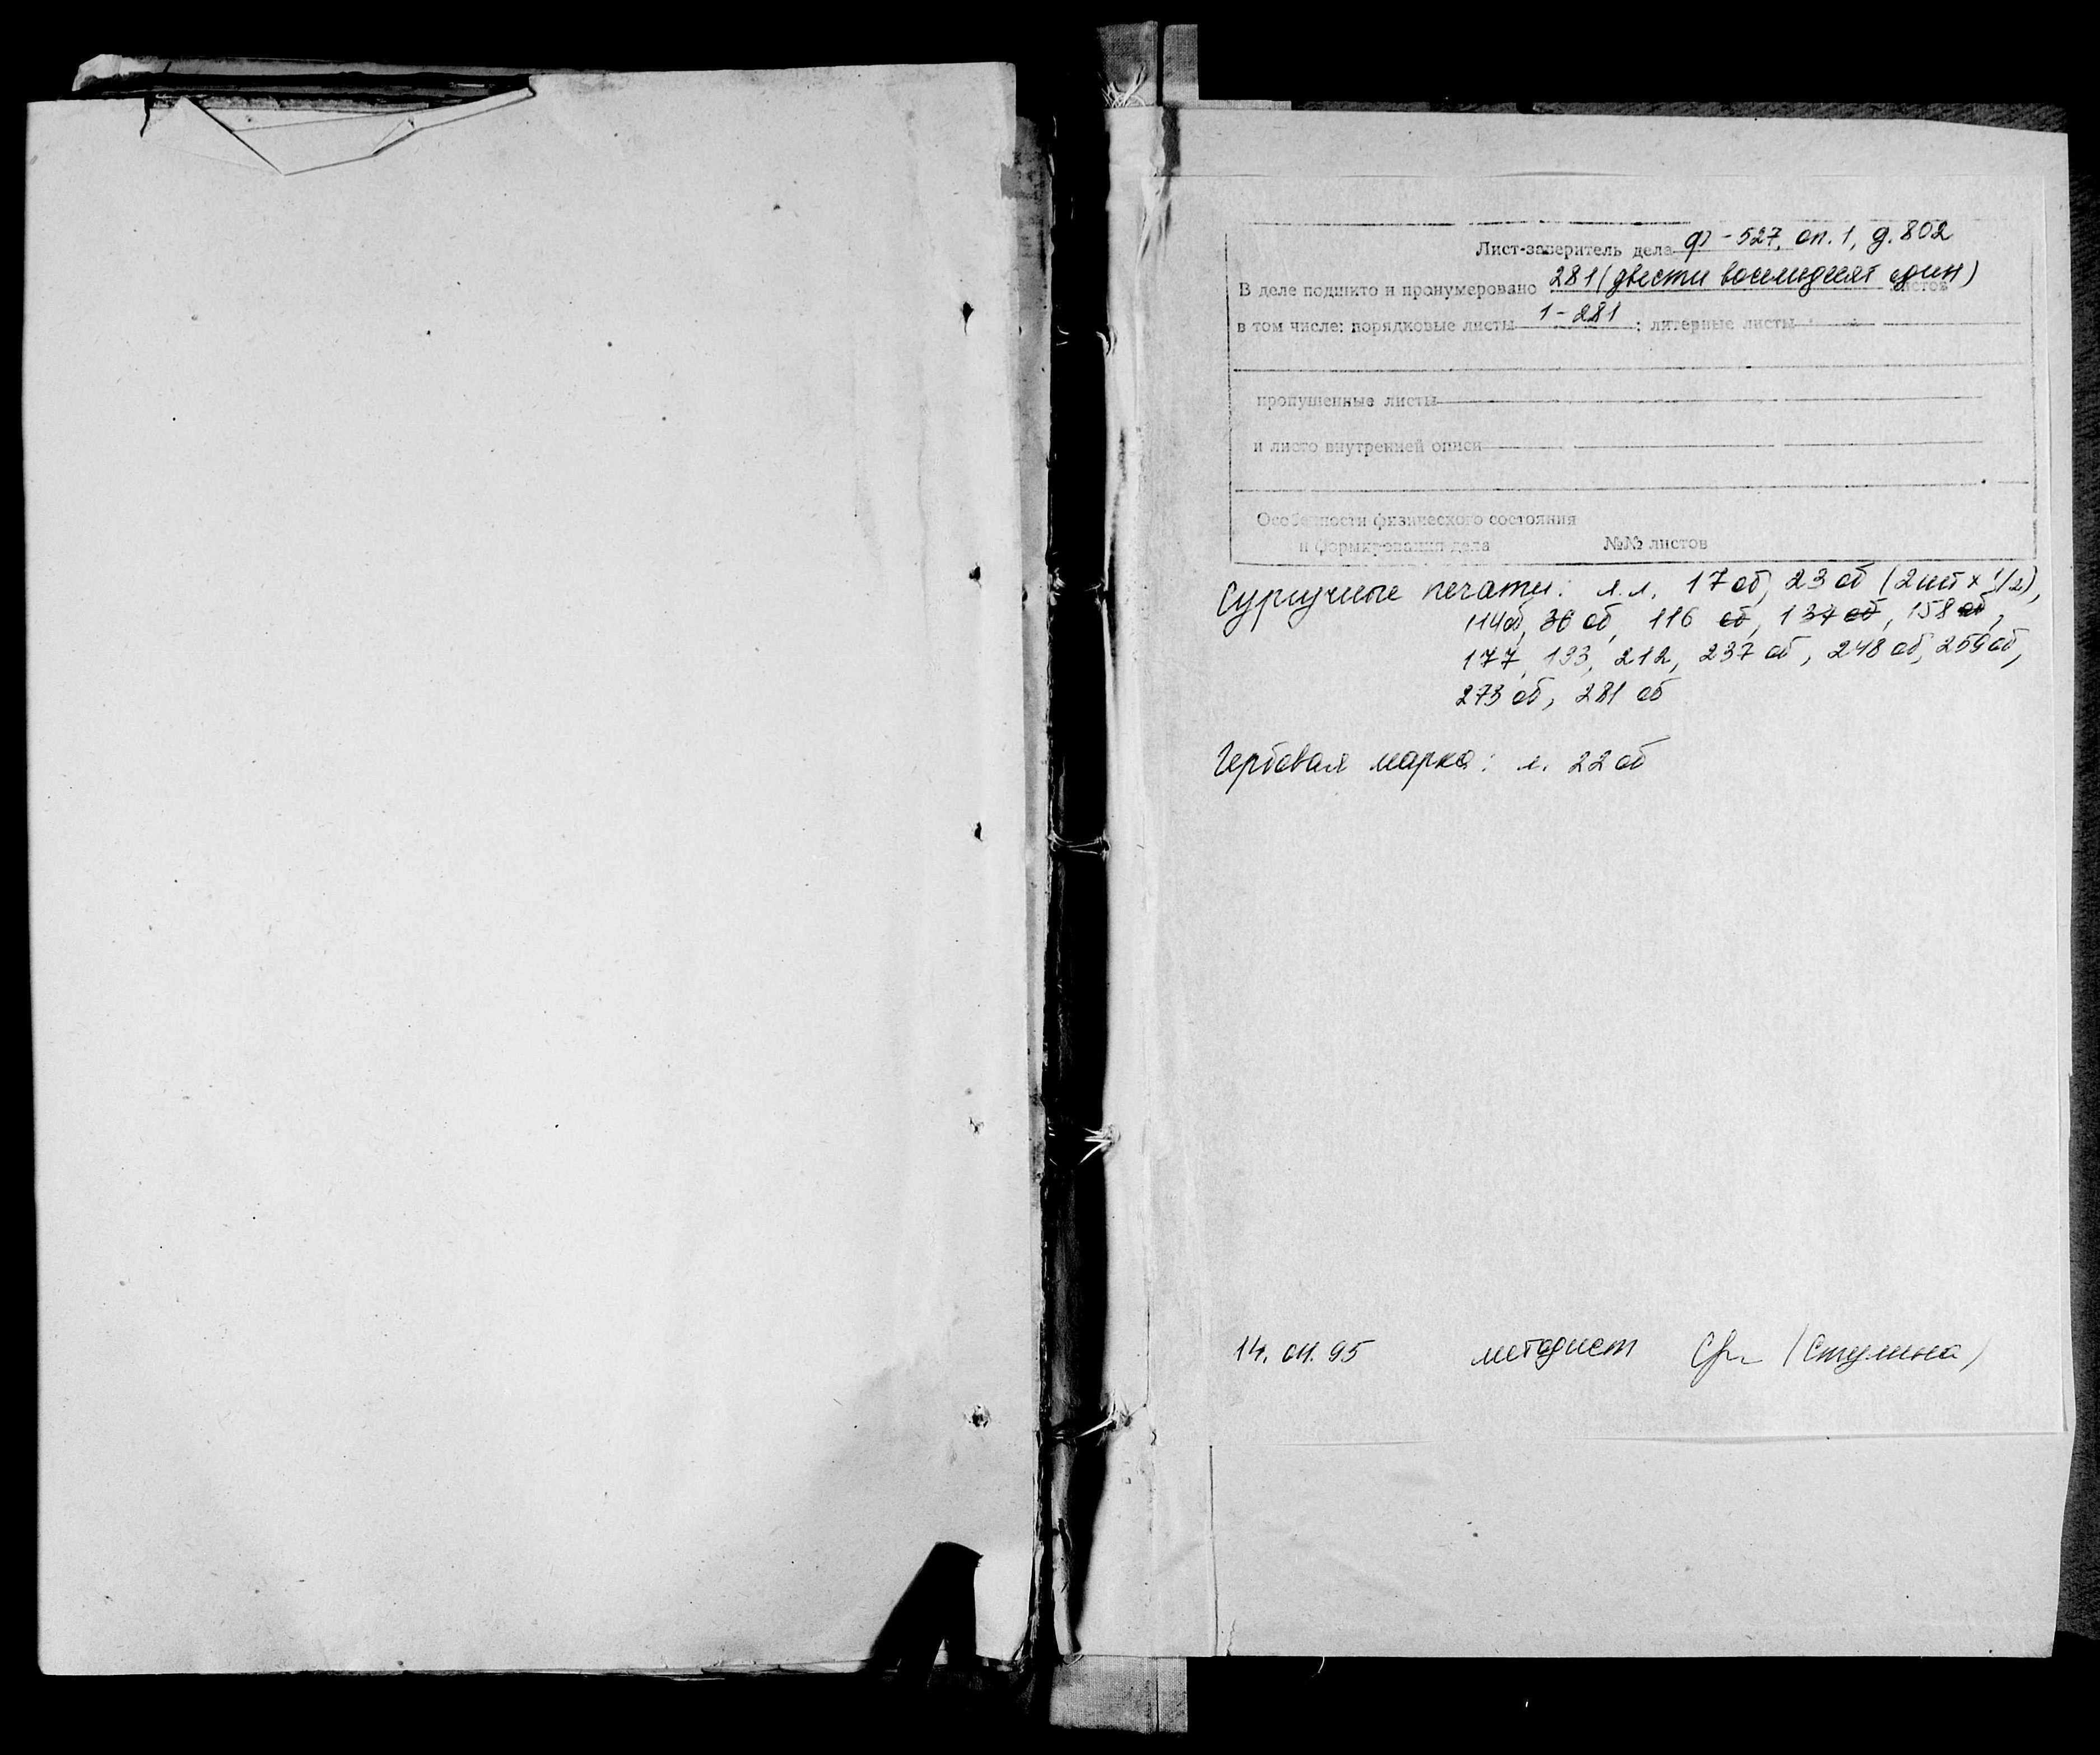 Лист-заверитель дела ф-527, оп. 1, д. 802
В деле подшито и пронумеровано 281 (двести восемьдесят один) листов
в том числе: порядковые листы 1-281; литерные листы
пропущенные листы
и листо внутренней описи
Особенности физического состояния
и формирования дела №№ листов
Сургучные печати: л.л. 17 об, 23 об (2 шт х 1/2),
114об, 36 об, 116 об, 137 об, 158 об,
177, 193, 212, 237 об, 248 об, 259 об,
273 об, 281 об
Гербовая марка: л. 22 об
14. 04. 95 методист (Стулина)